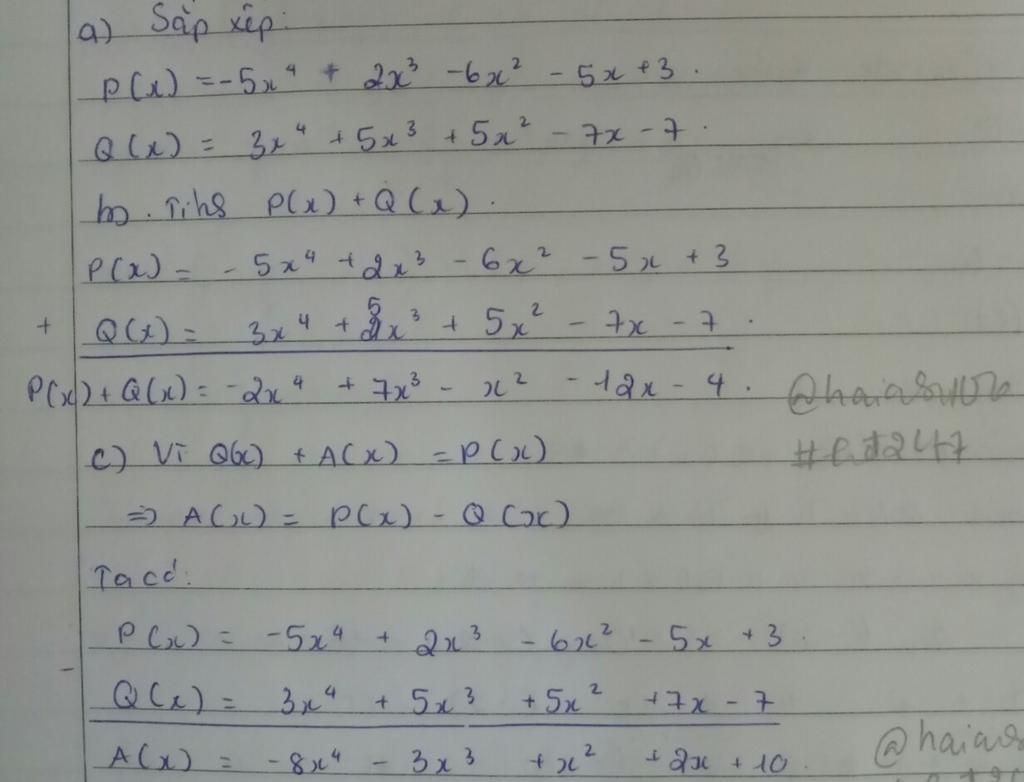 a) Sắp xếp:
P(x) = -5x⁴ + 2x³ - 6x² - 5x + 3.
Q(x) = 3x⁴ + 5x³ + 5x² - 7x - 7.
b). Tính P(x) + Q(x).
P(x) = - 5x⁴ + 2x³ - 6x² - 5x + 3
+ Q(x) = 3x⁴ + 5x³ + 5x² - 7x - 7.
P(x) + Q(x) = -2x⁴ + 7x³ - x² - 12x - 4.
c) Vì Q(x) + A(x) = P(x)
=> A(x) = P(x) - Q(x)
Ta có:
P(x) = -5x⁴ + 2x³ - 6x² - 5x + 3.
- Q(x) = 3x⁴ + 5x³ + 5x² + 7x - 7
A(x) = -8x⁴ - 3x³ + x² + 2x + 10